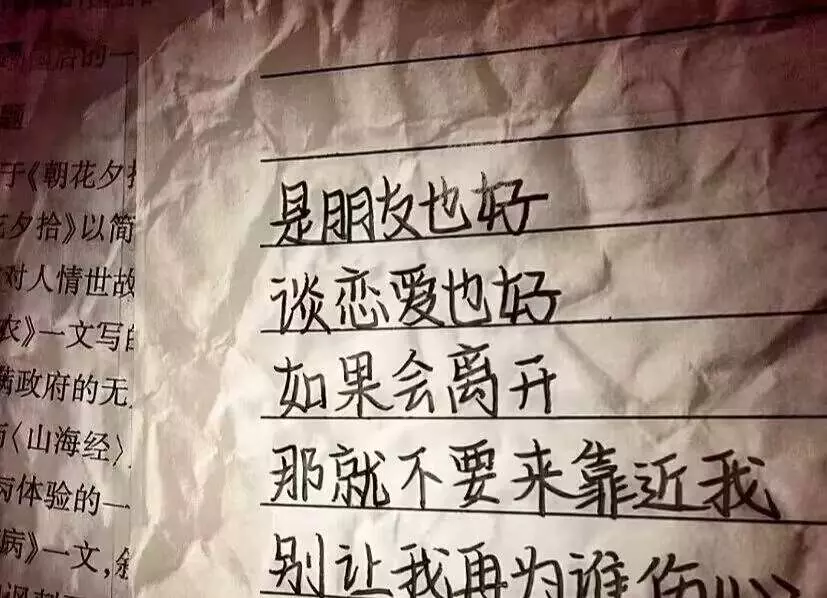 题
于《朝花夕
花夕拾》以简
对人情世故
衣》一文写
满政府的无
《山海经》
病体验的一
病》一文，
是朋友也好
谈恋爱也好
如果会离开
那就不要来靠近我
别让我再为谁伤心